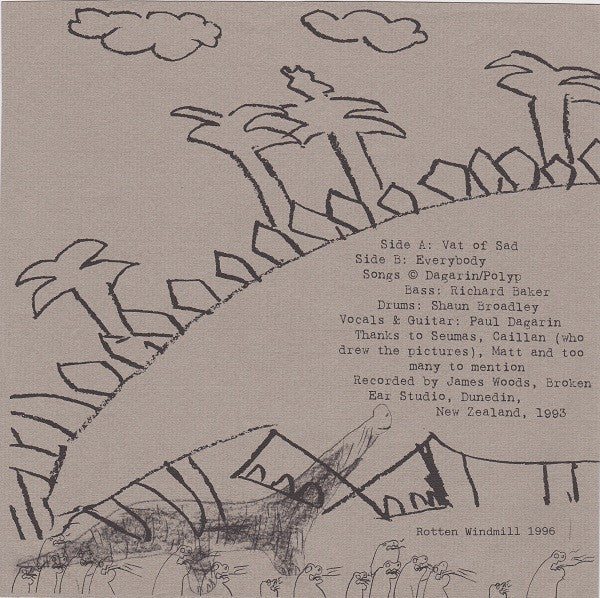 Side A: Vat of Sad
Side B: Everybody
Songs © Dagarin/Polyp
Bass: Richard Baker
Drums: Shaun Broadley
Vocals & Guitar: Paul Dagarin
Thanks to Seumas, Caillan (who
drew the pictures), Matt and too
many to mention
Recorded by James Woods, Broken
Ear Studio, Dunedin,
New Zealand, 1993
Rotten Windmill 1996